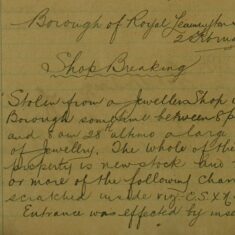 Borough of Royal Leamington
2
Shop Breaking
Stolen from a Jewellers Shop
Borough sometime between 8 p
and 8 am 28th ultimo a large
of Jewellery. The whole of the
property is new stock and
or more of the following char
scratched inside viz. C.S.X.
Entrance was effected by inse